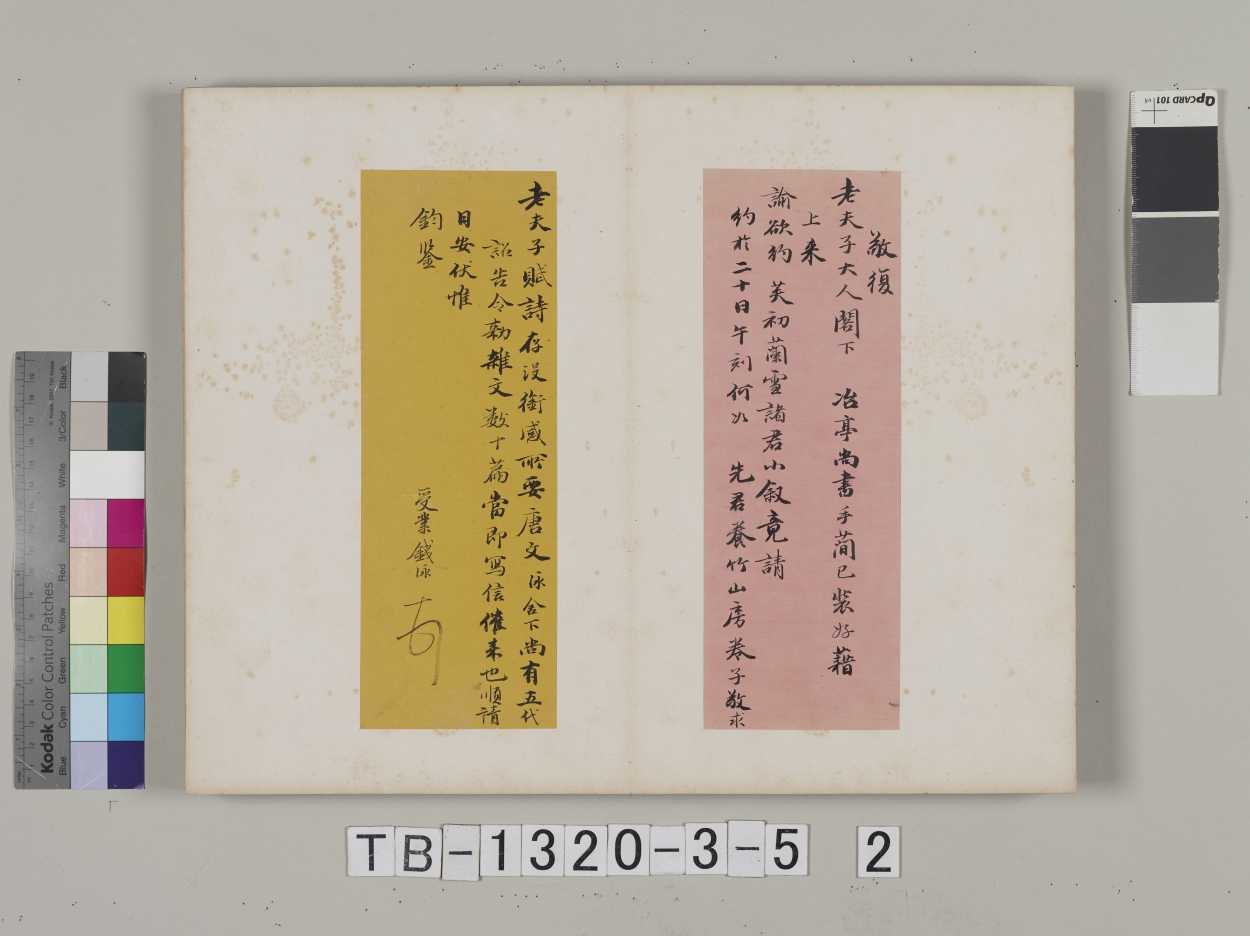 敬復
老夫子大人閣下 冶亭尚書手蕳已裝好藉
上来
諭欲約 芙初蘭雪諸君小叙竟請
約於二十日午刻何如 先君養竹山房卷子敬求
老夫子賦詩存没銜感所要唐文泳舍下尚有五代
詔告令勅雜文数十篇當即寫信催来也順請
日安伏惟
鈞鉴
受業錢泳
TB-1320-3-5 2
Kodak Color Control Patches
Blue Cyan Green Yellow Red Magenta White 3/Color Black
QPCARD 101 v4